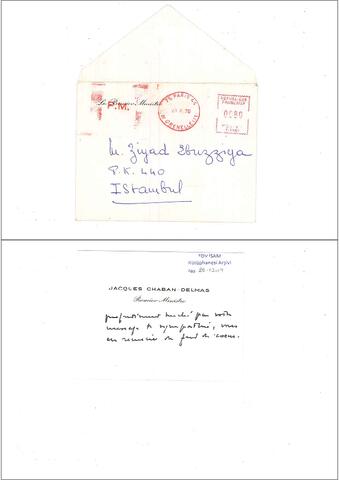 Le Premier Ministre
P.M.
75 PARIS 44
R. GRENELLE
REPUBLIQUE
FRANCAISE
0080
M. Ziyad Ebuzziya
P.K. 440
Istanbul
TDV İSAM
Kütüphanesi Arşivi
No
JACQUES CHABAN-DELMAS
Premier Ministre
profondément touché par votre
message de sympathie, vous
en remercie du fond du coeur.